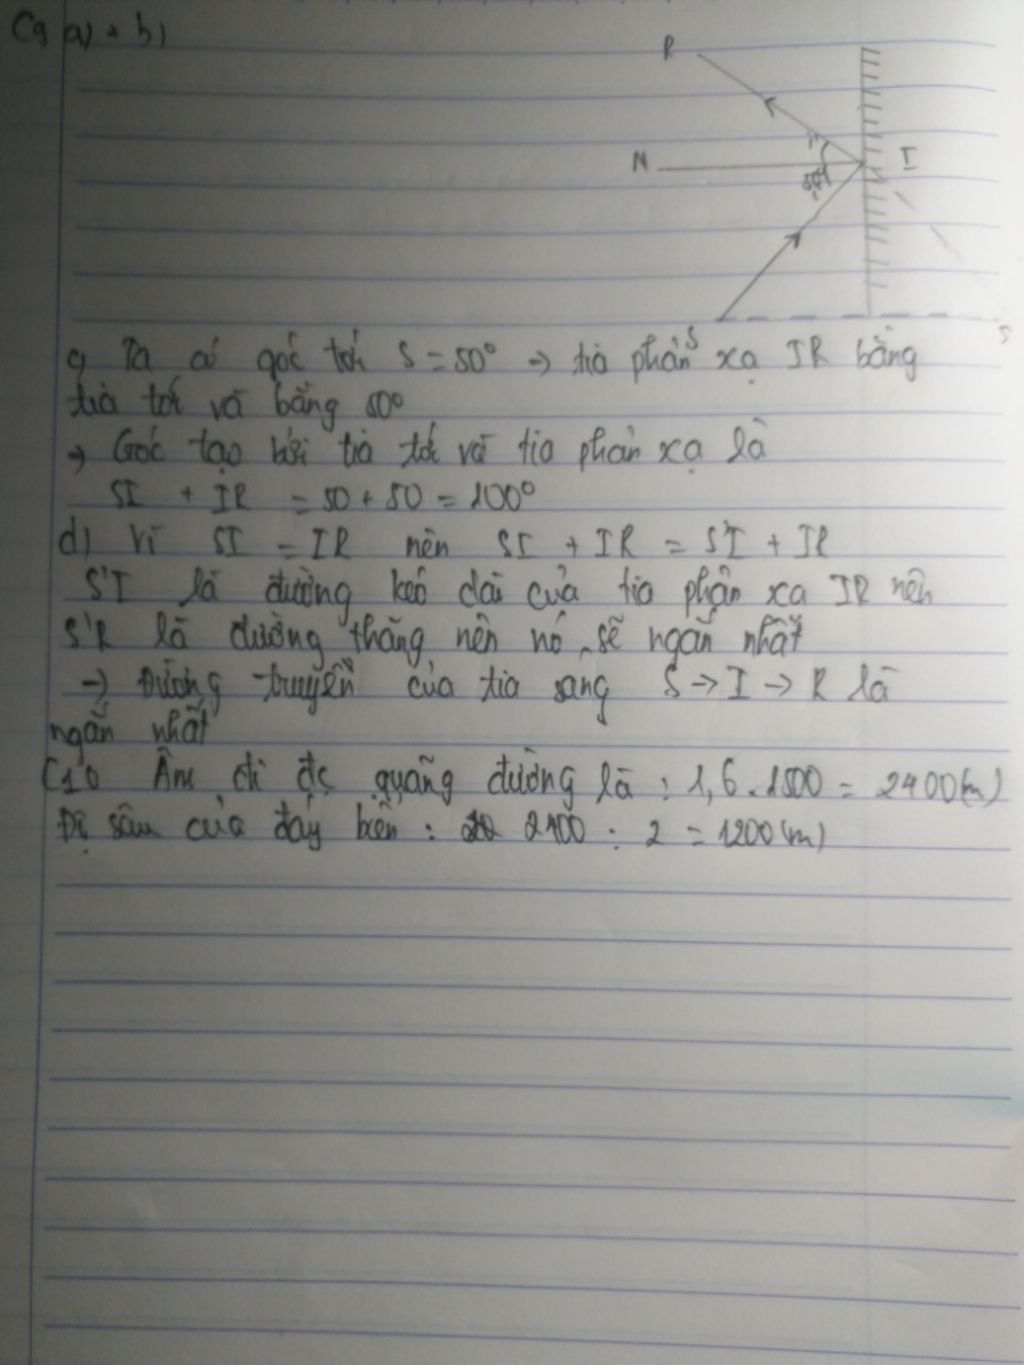 C9 a) + b)
R
N
I
i'
i
S
S'
c) Ta có góc tới S = 50° → tia phản xạ IR bằng
tia tới và bằng 50°
→ Góc tạo bởi tia tới và tia phản xạ là
SI + IR = 50 + 50 = 100°
d) Vì SI = IR nên SI + IR = S'I + IR
S'I là đường kéo dài của tia phản xạ IR nên
S'R là đường thẳng nên nó sẽ ngắn nhất
→ Đường truyền của tia sáng S → I → R là
ngắn nhất
C10 Âm đi đc quãng đường là : 1,6 . 1500 = 2400 (m)
Độ sâu của đáy biển : 2400 : 2 = 1200 (m)